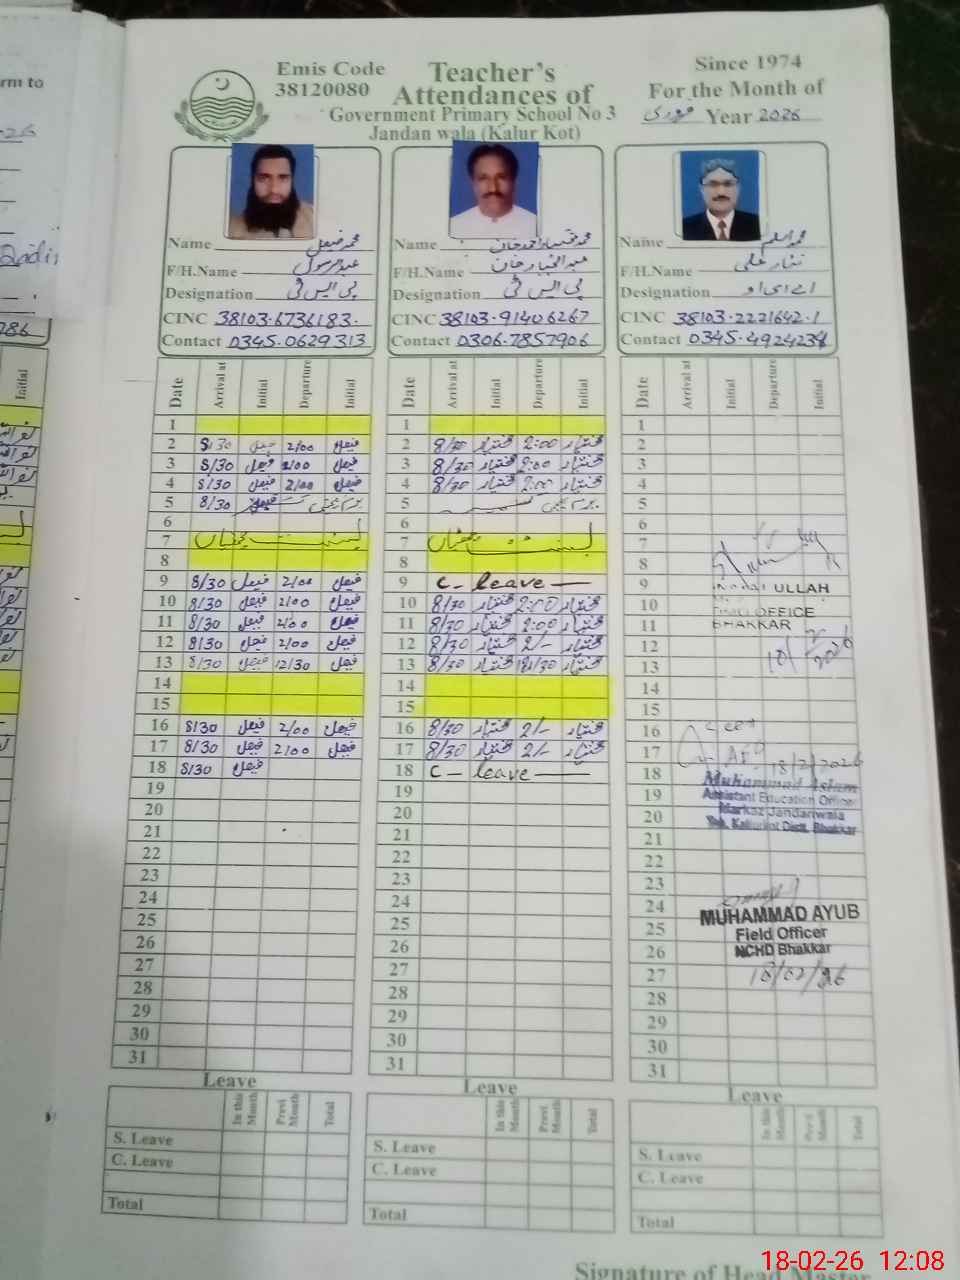 Emis Code
38120080
Teacher's
Attendances of
Government Primary School No 3
Jandan wala (Kalur Kot)
Since 1974
For the Month of
فروری Year 2026
rm to
-26
Qadii
786
Initial
Name محمد فیصل
F/H.Name عبدالرسول
Designation پی ایس ٹی
CINC 38103-6736183-
Contact 0345-0629313
Name محمد مختیار احمد خان
F/H.Name عبدالجبار خان
Designation پی ایس ٹی
CINC 38103-9140626-7
Contact 0306-7857906
Name محمد اسلم
F/H.Name نثار علی
Designation اے ای او
CINC 38103-2221642-1
Contact 0345-4924238
Date Arrival at Initial Departure Initial
1
2 8/30 فیصل 2/00 فیصل
3 8/30 فیصل 2/00 فیصل
4 8/30 فیصل 2/00 فیصل
5 8/30 فیصل یوم یکجہتی کشمیر
6
7 لوکل بسنت چھٹیاں
8
9 8/30 فیصل 2/00 فیصل
10 8/30 فیصل 2/00 فیصل
11 8/30 فیصل 2/00 فیصل
12 8/30 فیصل 2/00 فیصل
13 8/30 فیصل 12/30 فیصل
14
15
16 8/30 فیصل 2/00 فیصل
17 8/30 فیصل 2/00 فیصل
18 8/30 فیصل
19
20
21
22
23
24
25
26
27
28
29
30
31
Date Arrival at Initial Departure Initial
1
2 8/30 مختیار 2:00 مختیار
3 8/30 مختیار 2:00 مختیار
4 8/30 مختیار 2:00 مختیار
5 یوم یکجہتی کشمیر
6
7 بسنت چھٹیاں
8
9 C- leave
10 8/30 مختیار 2:00 مختیار
11 8/30 مختیار 2:00 مختیار
12 8/30 مختیار 2/- مختیار
13 8/30 مختیار 12/30 مختیار
14
15
16 8/30 مختیار 2/- مختیار
17 8/30 مختیار 2/- مختیار
18 C- leave
19
20
21
22
23
24
25
26
27
28
29
30
31
Date Arrival at Initial Departure Initial
1
2
3
4
5
6
7
8
9 ULLAH
10 OFFICE
11 BHAKKAR
12
13
14
15
16
17 18/2/2026
18 Muhammad Aslam
19 Assistant Education Officer
20 Markaz Jandanwala
Teh. Kallurkot Distt. Bhakkar
21
22
23
24 MUHAMMAD AYUB
25 Field Officer
26 NCHD Bhakkar
27 18/02/26
28
29
30
31
Leave
In this Month Previ Month Total
S. Leave
C. Leave
Total
Leave
In this Month Previ Month Total
S. Leave
C. Leave
Total
Leave
In this Month Previ Month Total
S. Leave
C. Leave
Total
Signature of Head Master
18-02-26 12:08